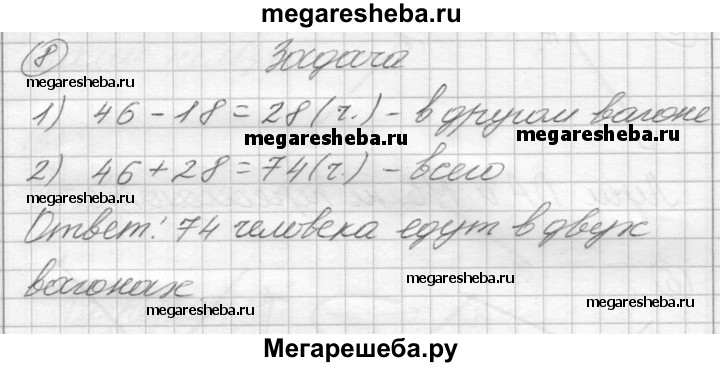 megaresheba.ru
8 Задача
megaresheba.ru
1) 46 - 18 = 28 (ч.) - в другом вагоне
megaresheba.ru megaresheba.ru
2) 46 + 28 = 74 (ч.) - всего
megaresheba.ru
Ответ: 74 человека едут в двух
вагонах
megaresheba.ru megaresheba.ru
megaresheba.ru
Мегарешеба.ру